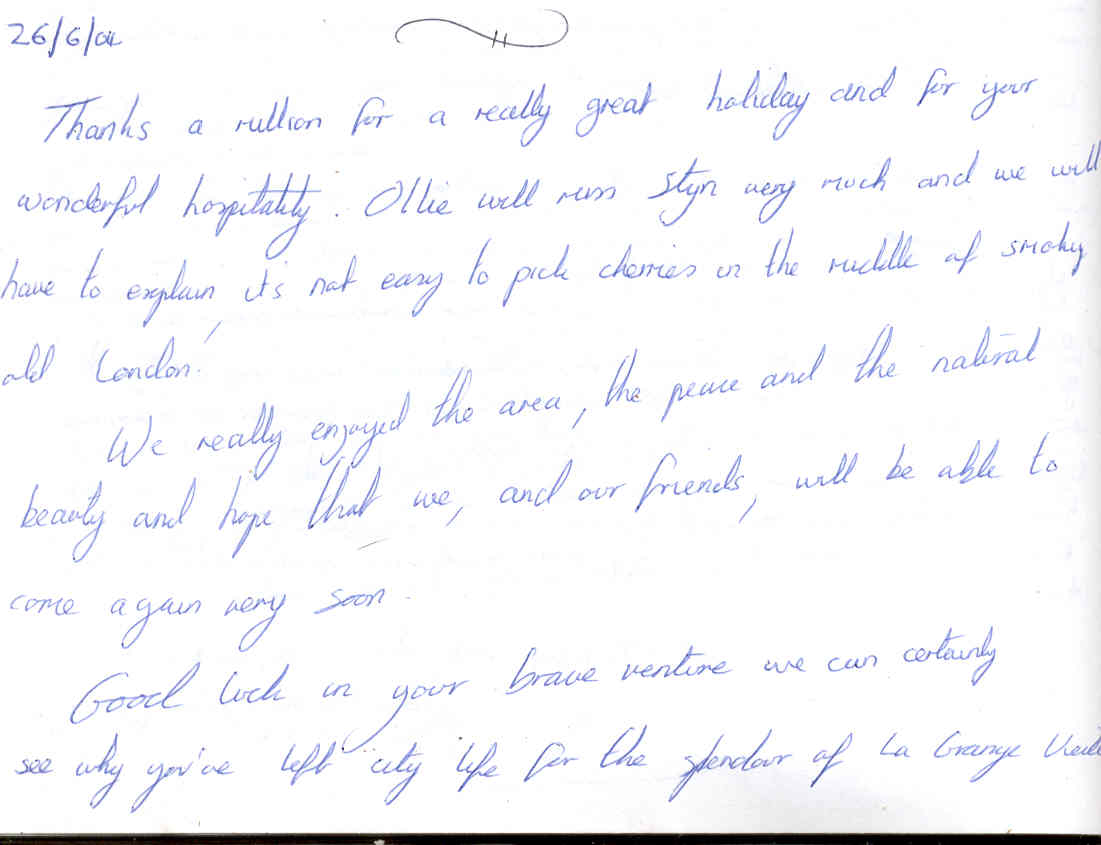 26/6/04
Thanks a million for a really great holiday and for your
wonderful hospitality. Ollie will miss Styn very much and we will
have to explain it's not easy to pick cherries in the middle of smoky
old London!
We really enjoyed the area, the peace and the natural
beauty and hope that we, and our friends, will be able to
come again very soon.
Good luck in your brave venture we can certainly
see why you've left city life for the splendour of La Grange